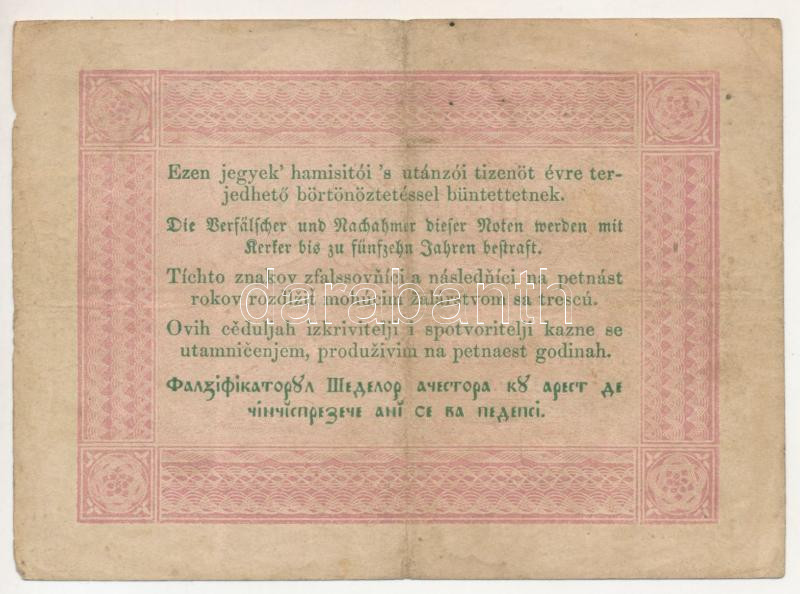 Ezen jegyek' hamisitói 's utánzói tizenöt évre ter-
jedhető börtönöztetéssel büntettetnek.
Die Verfälscher und Nachahmer dieser Noten werden mit
Kerker bis zu fünfzehn Jahren bestraft.
Tíchto znakov zfalssovňíci a následňíci na petnást
rokov rozdĺžiť mohúcim žalárstvom sa trescú.
darabanth
Ovih cěduljah izkrivitelji i spotvoritelji kazne se
utamničenjem, produživim na petnaest godinah.
Фалзіфікаторꙋл Шеделор ачестора кꙋ арест де
чінчіспрезече анĭ се ва педепсі.